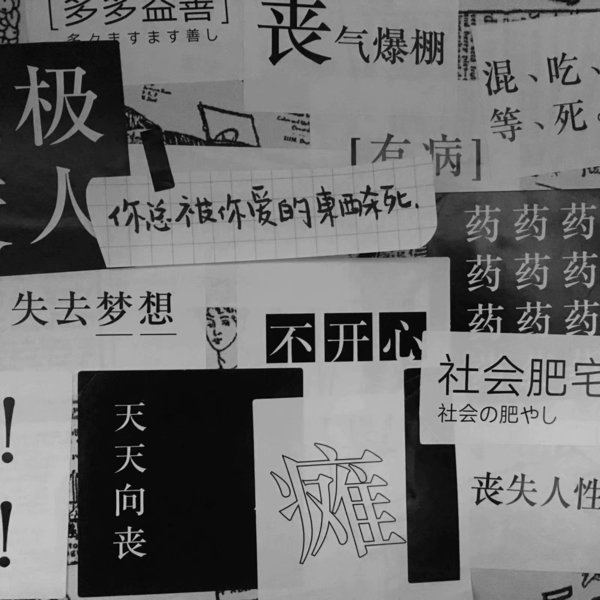 [多多益善]
多々ますます善し
丧气爆棚
混、吃、
等、死。
极
人
[有病]
你总被你爱的東西杀死.
药药药
药药药
药药药
失去梦想
不开心
社会肥宅
社会の肥やし
!
!
天天向丧
瘫
丧失人性